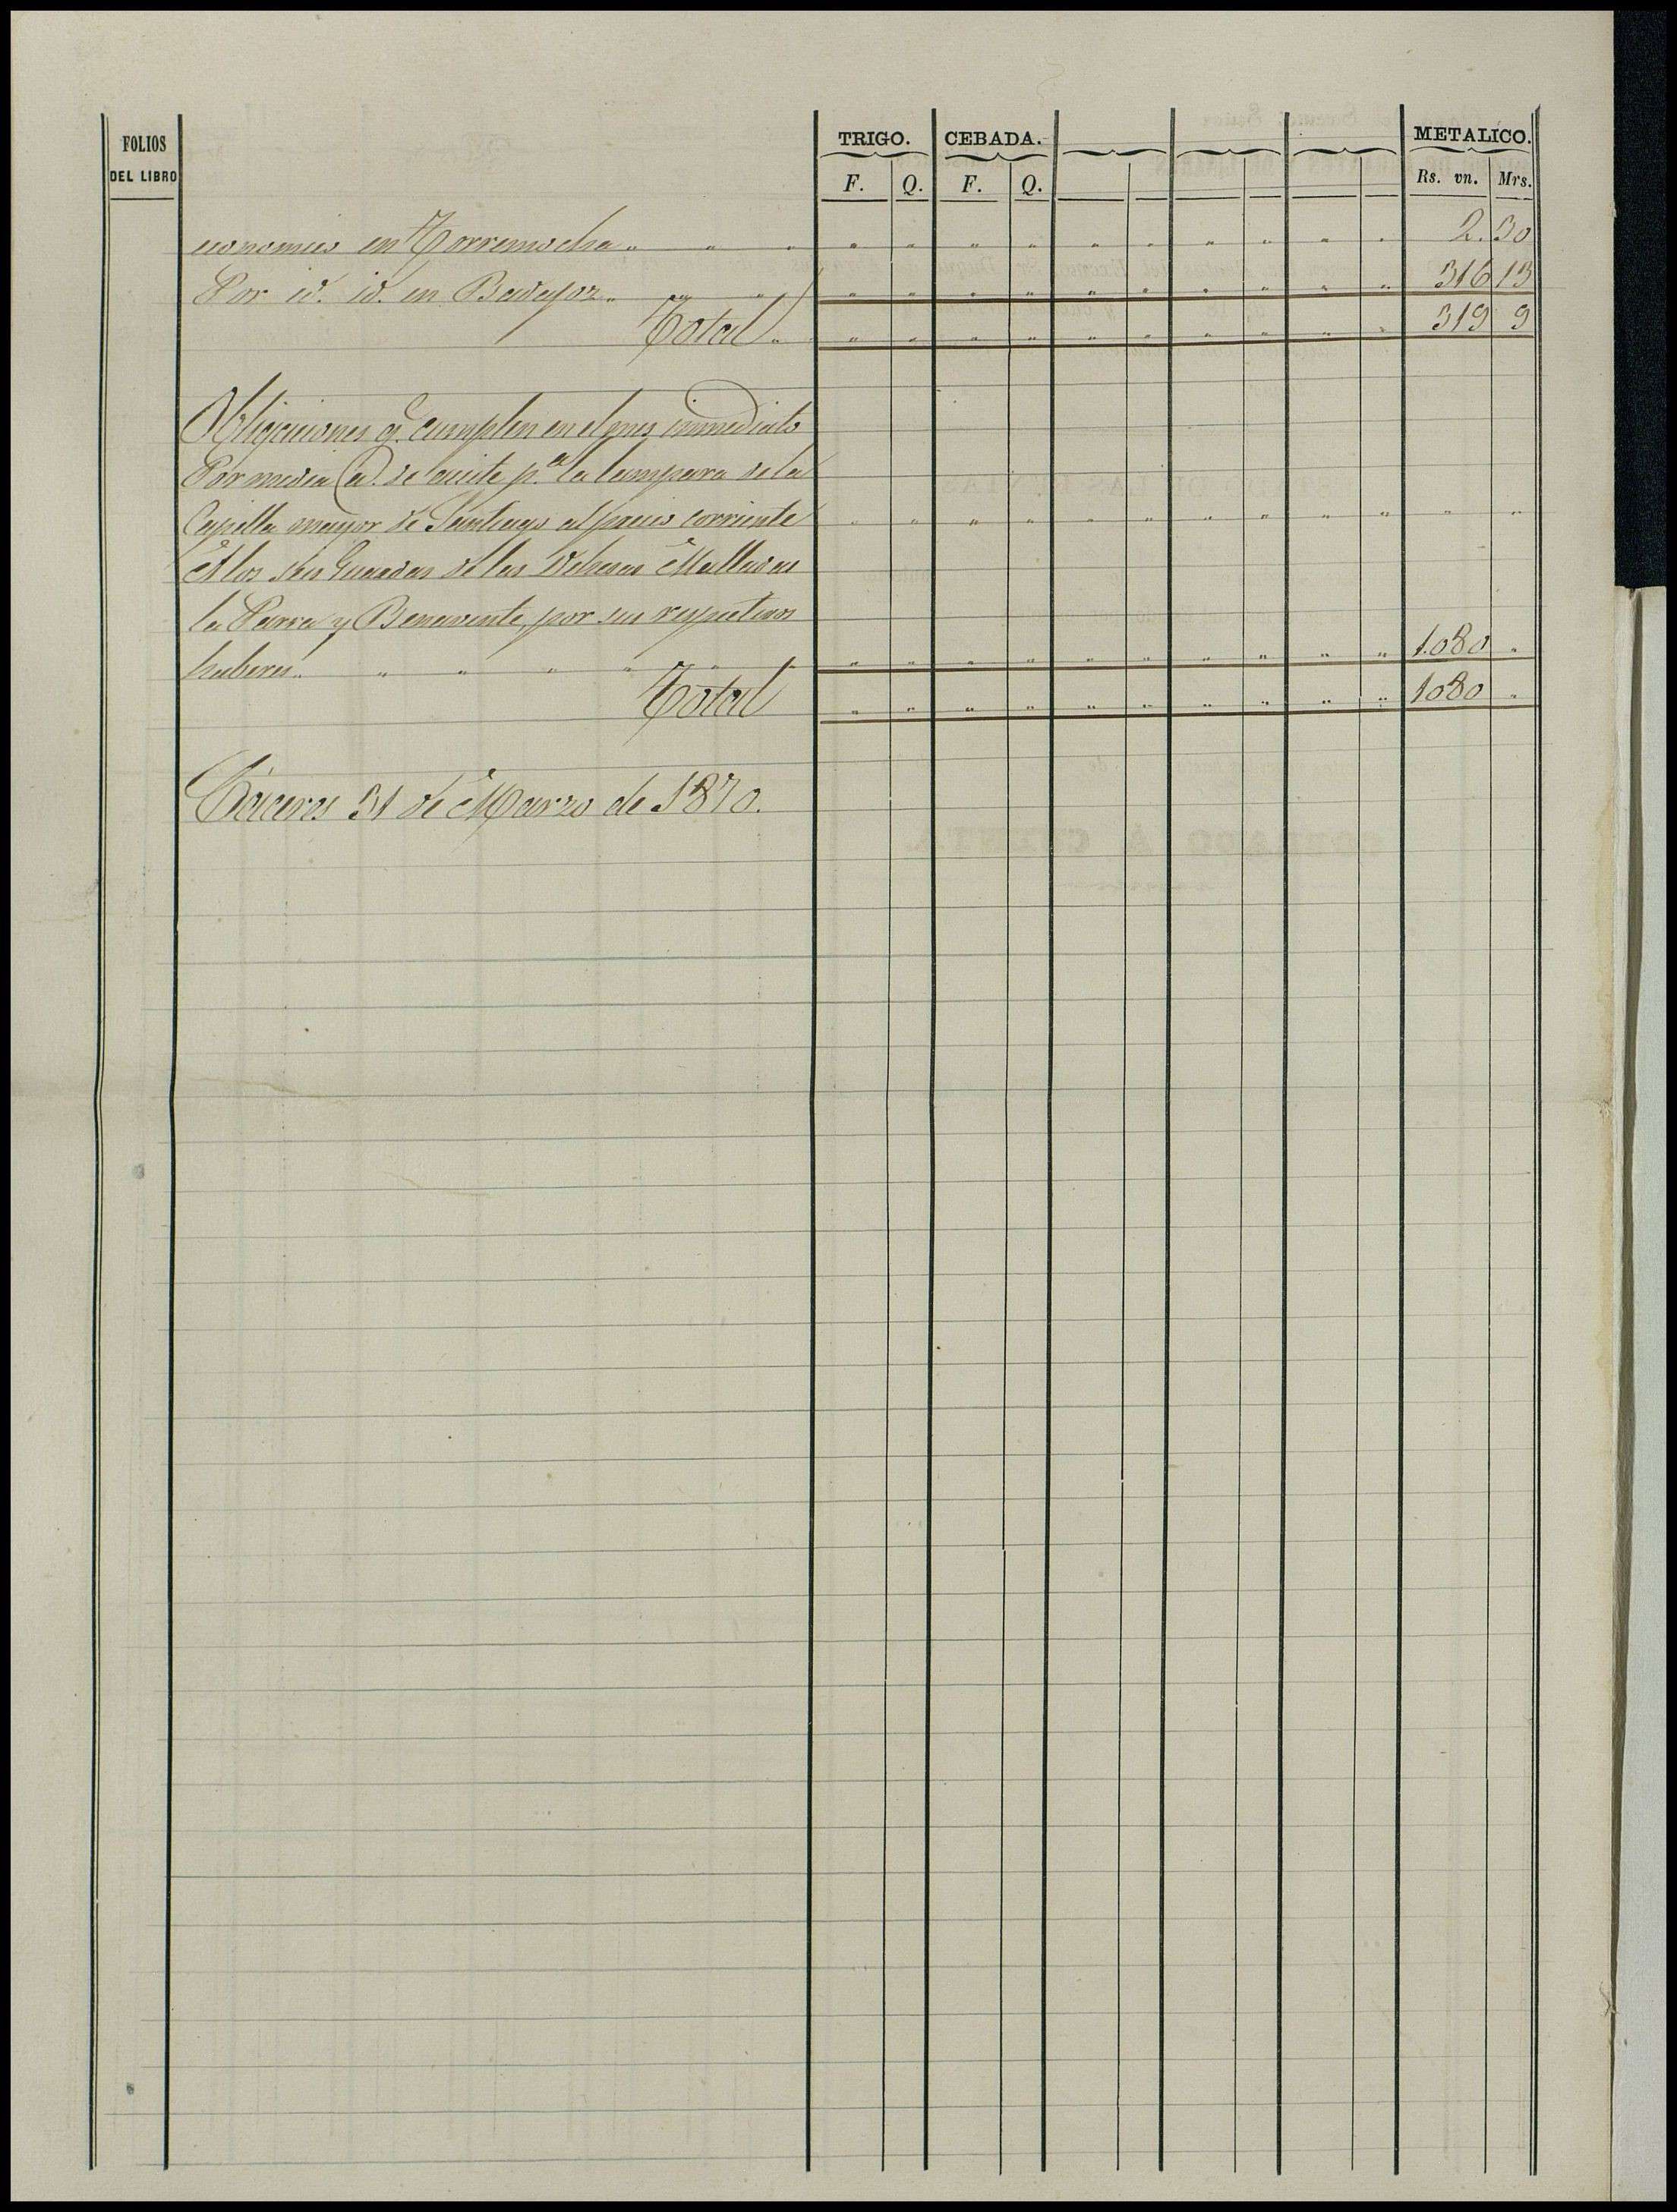 FOLIOS
DEL LIBRO
TRIGO. CEBADA. METALICO.
F. Q. F. Q. Rs. vn. Mrs.
economico en Torremocha " " " " " " " " " " " " " 2. 30
Por id. id. en Badajoz " " " " " " " " " " " " 316 13
Total " " " " " " " " " " " 319 9
Obligaciones q.e cumplen en el mes inmediato
Por media @. de aceite p.a la lampara de la
Capilla mayor de Santiago al precio corriente " " " " " " " " " " " "
A los seis Guardas de las Dehesas Malladas
la Parra y Benavente, por sus respectivos
haberes " " " " " " " " " " " " " " " " 1.080 "
Total " " " " " " " " " " 1080 "
Cáceres 31 de Marzo de 1870.